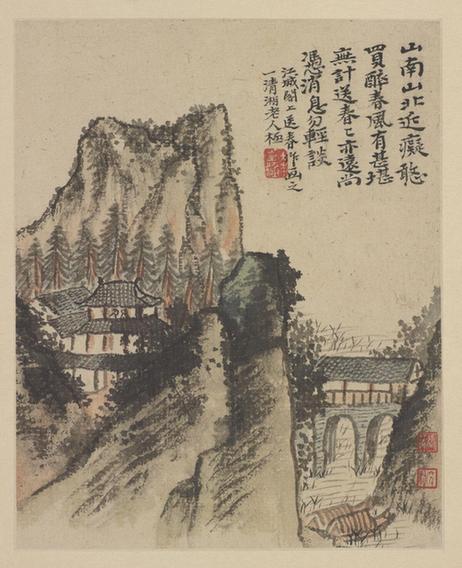 山南山北近癡憨
買醉春風有甚堪
無計送春〻亦遠尚
憑消息勿輕談
江城閣上送春作畫之
一清湘老人極